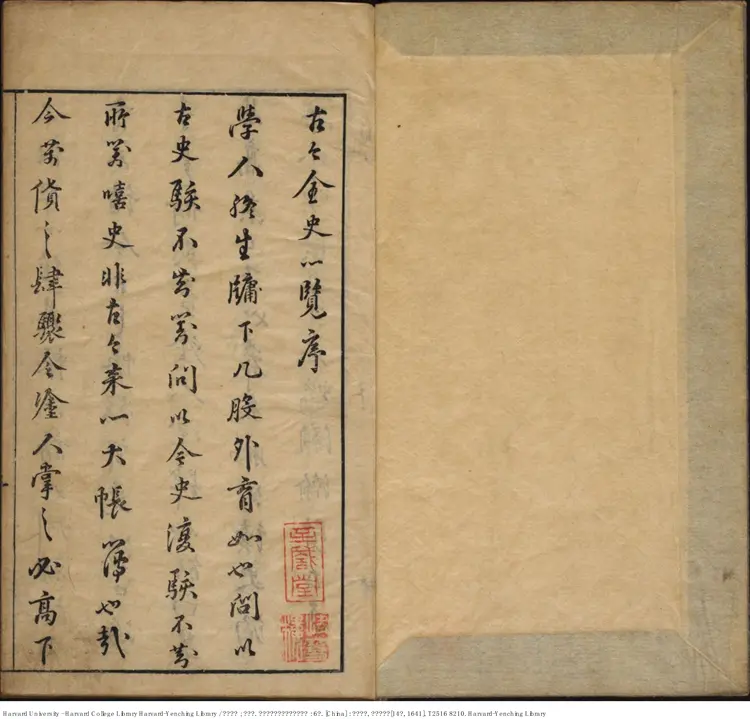 古今全史一覽序
學人終生牖下几股外盲如也問以
古史駭不知對問以今史復駭不知
所對嘻史非古今來一大帳簿也哉
今萬貨之肆驟令塗人掌之必高下
Harvard University - Harvard College Library Harvard-Yenching Library / ???? ; ???. ????????????? : 6?. [China] : ????, ?????[14?, 1641]. T2516 8210. Harvard-Yenching Library